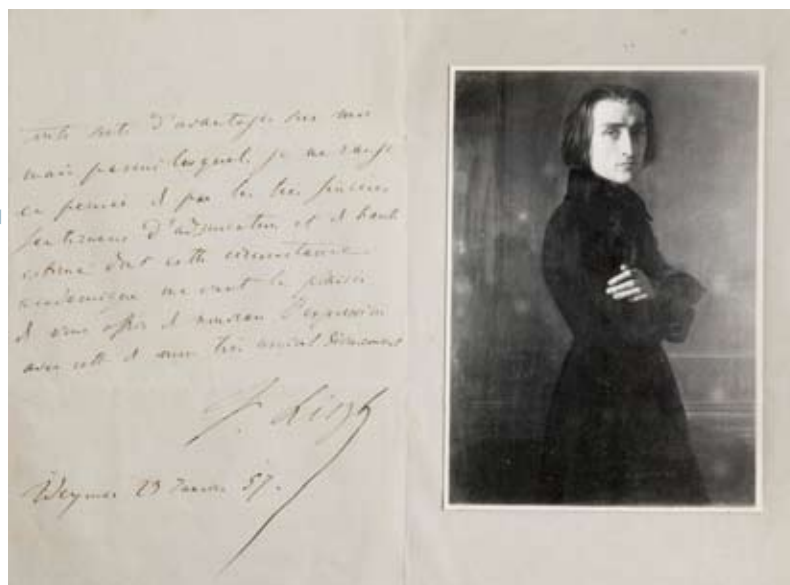 toute sorte d'avantages sur moi
mais parmi lesquels je me range
en pensée et par les très sincères
sentimens d'admiration et de haute
estime dont cette circonstance
académique me vaut le plaisir
de vous offrir de nouveau l'expression
avec celle de mon très amical dévouement
F. Liszt
Weymar 23 Janvier 57.